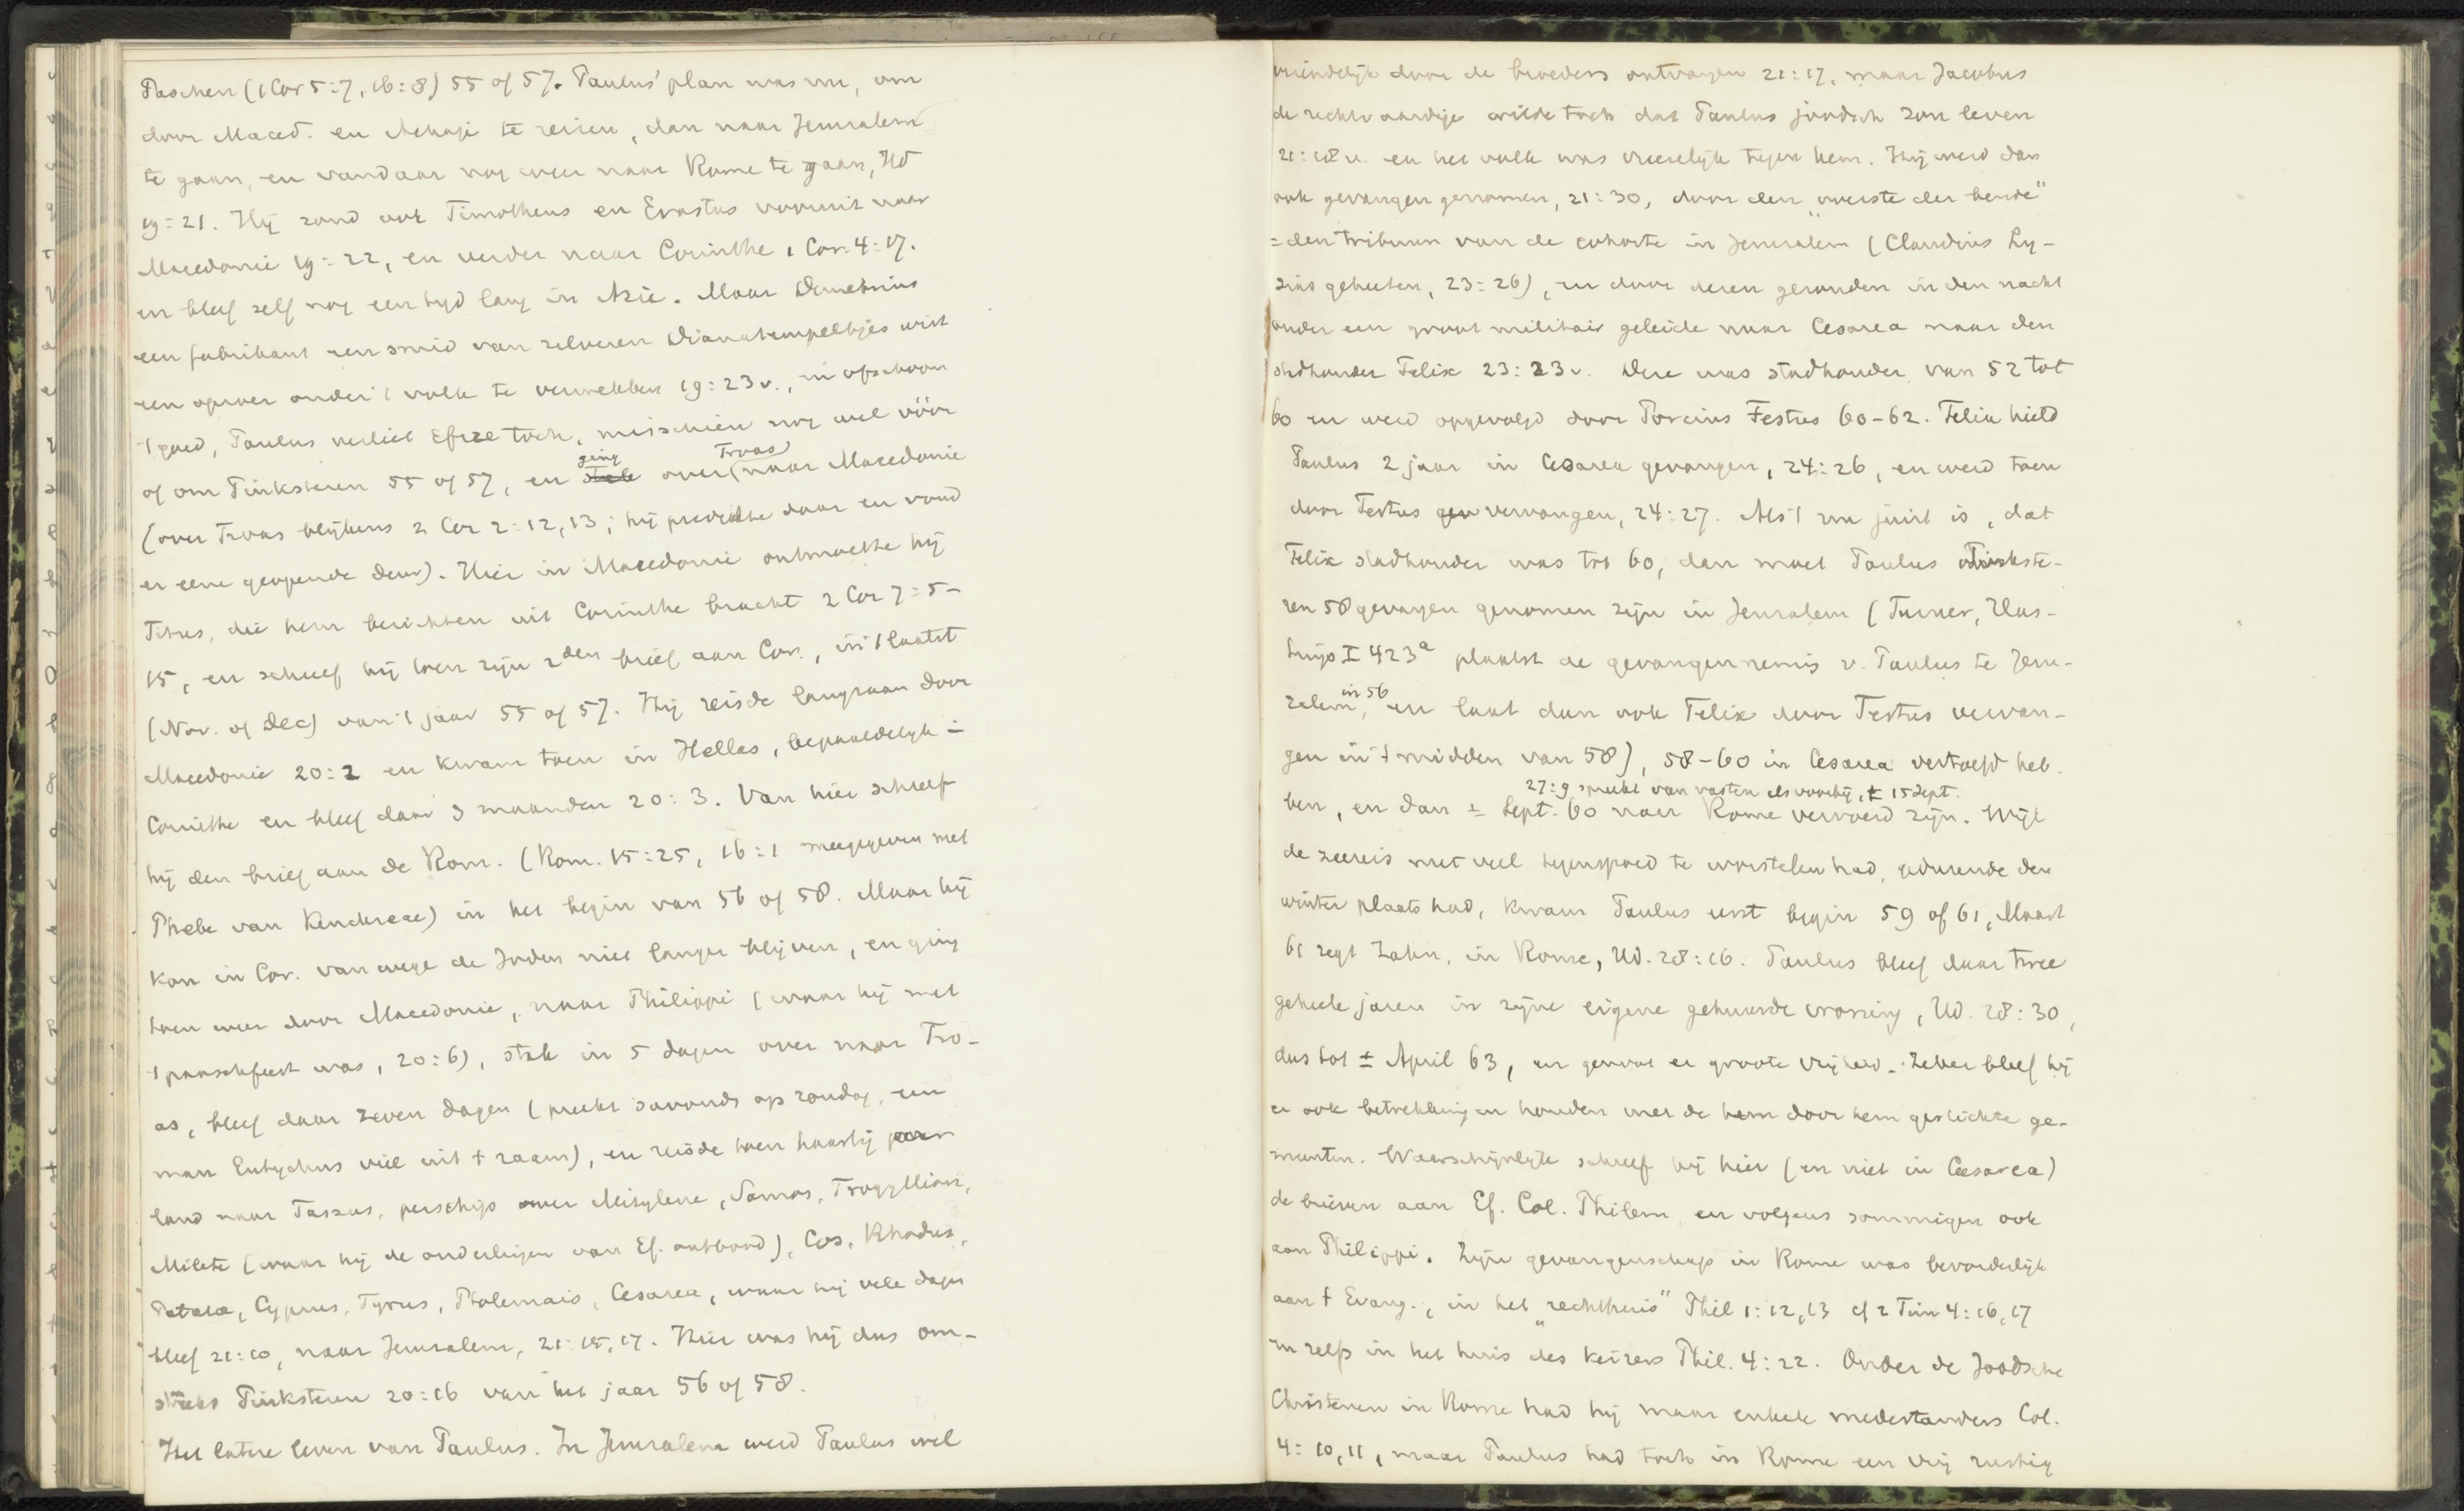 Paschen (1 Cor 5:7, 16:8) 55 of 57. Paulus' plan was nu, om
door Maced. en Achaje te reizen, dan naar Jeruzalem
te gaan, en vandaar nog weer naar Rome te gaan, Hd
19:21. Hij zond ook Timotheus en Erastus vooruit naar
Macedonie 19:22, en verder naar Corinthe 1 Cor. 4:17.
en bleef zelf nog een tijd lang in Azie. Maar Demetrius
een fabrikant een smid van zilveren Dianatempeltjes wist
een oproer onder 't volk te verwekken 19:23v., en ofschoon
't goed, Paulus verliet Efeze toch, misschien nog wel vóór
of om Pinksteren 55 of 57, en ging over Troas naar Macedonie
(over Troas blijkens 2 Cor 2:12,13; hij predikte daar en vond
er eene geopende deur). Hier in Macedonie ontmoette hij
Titus, die hem berichten uit Corinthe bracht 2 Cor 7:5-
15, en schreef hij toen zijn 2den brief aan Cor., in 't laatst
(Nov. of Dec) van 't jaar 55 of 57. Hij reisde langzaam door
Macedonie 20:2 en kwam toen in Hellas, bepaaldelijk in
Corinthe en bleef daar 3 maanden 20:3. Van hier schreef
hij den brief aan de Rom. (Rom. 15:25, 16:1 meegegeven met
Phebe van Kenchreae) in het begin van 56 of 58. Maar hij
kon in Cor. vanwege de Joden niet langer blijven, en ging
toen weer door Macedonie, naar Philippi (waar hij met
't paaschfeest was, 20:6), stak in 5 dagen over naar Tro-
as, bleef daar zeven dagen (preekt savonds op zondag, een
man Eutychus viel uit 't raam), en reisde toen haastig over
land naar Assus, per schip over Mitylene, Samos, Trogyllion,
Milete (waar hij de ouderlingen van Ef. ontbood), Cos, Rhodus,
Patara, Cyprus, Tyrus, Ptolemais, Cesarea, waar hij vele dagen
bleef 21:10, naar Jeruzalem, 21:15,17. Hier was hij dus om-
streeks Pinksteren 20:16 van het jaar 56 of 58.
Het latere leven van Paulus. In Jeruzalem werd Paulus wel
vriendelijk door de broeders ontvangen 21:17, maar Jacobus
de rechtvaardige wilde toch dat Paulus joodsch zou leven
21:18v. en het volk was vreeselijk tegen hem. Hij werd dan
ook gevangen genomen, 21:30, door den „overste der bende"
= den tribuun van de cohorte in Jeruzalem (Claudius Ly-
sias geheeten, 23:26), en door dezen gezonden in den nacht
onder een groot militair geleide naar Cesarea naar den
stadhouder Felix 23:23v. Deze was stadhouder van 52 tot
60 en werd opgevolgd door Porcius Festus 60-62. Felix hield
Paulus 2 jaar in Cesarea gevangen, 24:26, en werd toen
door Festus vervangen, 24:27. Als 't nu juist is, dat
Felix stadhouder was tot 60, dan moet Paulus Pinkste-
ren 58 gevangen genomen zijn in Jeruzalem (Turner, Has-
tings I 423a plaatst de gevangenneming v. Paulus te Jeru-
zalem in 56, en laat dan ook Felix door Festus vervan-
gen in 't midden van 58), 58-60 in Cesarea vertoefd heb-
27:9 spreekt van vasten als voorbij, ± 15 Sept.
ben, en dan ± Sept. 60 naar Rome vervoerd zijn. Wijl
de zeereis met veel tegenspoed te worstelen had, gedurende den
winter plaats had, kwam Paulus eerst begin 59 of 61, Maart
61 zegt Zahn, in Rome, Hd. 28:16. Paulus bleef daar twee
geheele jaren in zijne eigene gehuurde woning, Hd. 28:30,
dus tot ± April 63, en genoot er groote vrijheid. Zeker bleef hij
er ook betrekkingen houden met de door hem gestichte ge-
meenten. Waarschijnlijk schreef hij hier (en niet in Cesarea)
de brieven aan Ef. Col. Philem, en volgens sommigen ook
aan Philippi. Zijn gevangenschap in Rome was bevorderlijk
aan 't Evang., in het „rechthuis" Phil 1:12,13 cf 2 Tim 4:16,17
en zelfs in het huis des keizers Phil. 4:22. Onder de Joodsche
Christenen in Rome had hij maar enkele medestanders Col.
4:10,11, maar Paulus had toch in Rome een vrij rustig